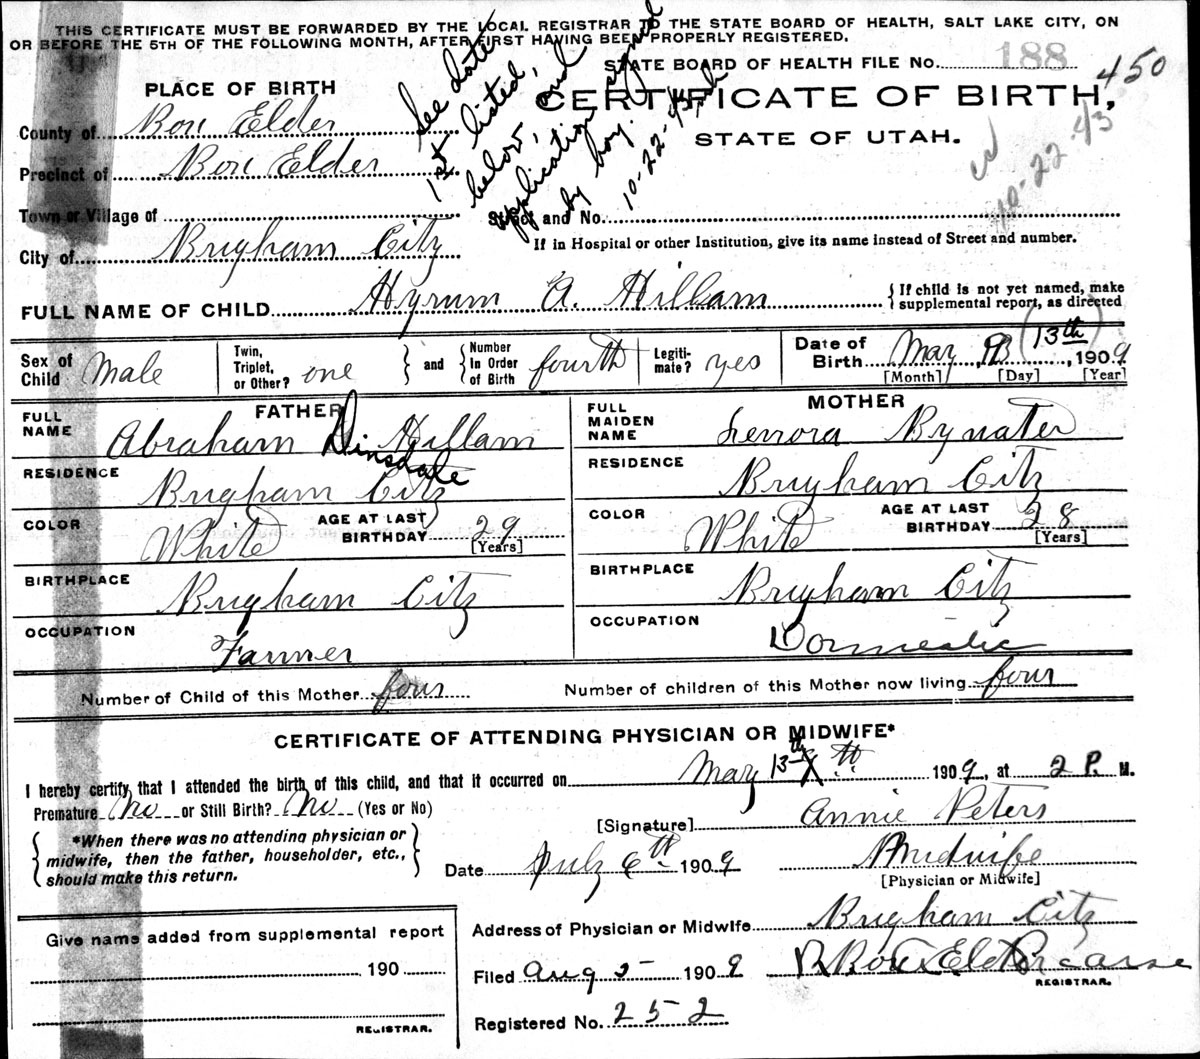 THIS CERTIFICATE MUST BE FORWARDED BY THE LOCAL REGISTRAR TO THE STATE BOARD OF HEALTH, SALT LAKE CITY, ON
OR BEFORE THE 5TH OF THE FOLLOWING MONTH, AFTER FIRST HAVING BEEN PROPERLY REGISTERED.
STATE BOARD OF HEALTH FILE NO. 188
450
PLACE OF BIRTH
CERTIFICATE OF BIRTH,
STATE OF UTAH.
See date
1st listed,
below, and
application signed
by boy.
10-22-43
10-22-43
County of Box Elder
Precinct of Box Elder
Town or Village of
Street and No.
City of Brigham City
If in Hospital or other Institution, give its name instead of Street and number.
FULL NAME OF CHILD Hyrum A. Hillam
{ If child is not yet named, make
supplemental report, as directed
Sex of Child Male
Twin, Triplet, or Other? one
and
Number In Order of Birth fourth
Legiti-mate? yes
Date of Birth May (13th), 1909
[Month] [Day] [Year]
FATHER
FULL NAME Abraham Dinsdale Hillam
RESIDENCE Brigham City
COLOR White
AGE AT LAST BIRTHDAY 29 [Years]
BIRTHPLACE Brigham City
OCCUPATION Farmer
MOTHER
FULL MAIDEN NAME Lenora Bynater
RESIDENCE Brigham City
COLOR White
AGE AT LAST BIRTHDAY 28 [Years]
BIRTHPLACE Brigham City
OCCUPATION Domestic
Number of Child of this Mother four
Number of children of this Mother now living four
CERTIFICATE OF ATTENDING PHYSICIAN OR MIDWIFE*
I hereby certify that I attended the birth of this child, and that it occurred on May 13th 1909, at 2 P. M.
Premature No or Still Birth? No (Yes or No)
[Signature] Annie Peters
*When there was no attending physician or
midwife, then the father, householder, etc.,
should make this return.
Date July 6th 1909
Midwife
[Physician or Midwife]
Give name added from supplemental report
, 190
REGISTRAR.
Address of Physician or Midwife Brigham City
Filed Aug 5 1909
REGISTRAR.
Registered No. 252